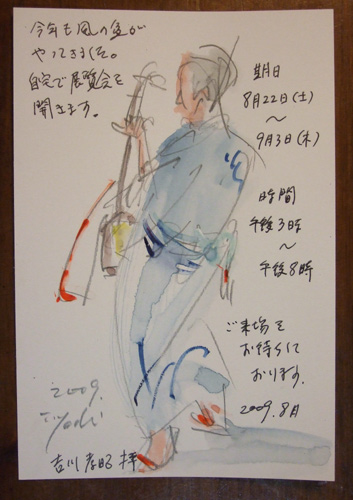 今年も風の盆が
やってきました。
自宅で展覧会を
開きます。
期日
8月22日(土)
〜
9月3日(木)
時間
午後3時
〜
午後8時
ご来場を
お待ちして
おります。
2009.8月
2009.
吉川孝昭 拝